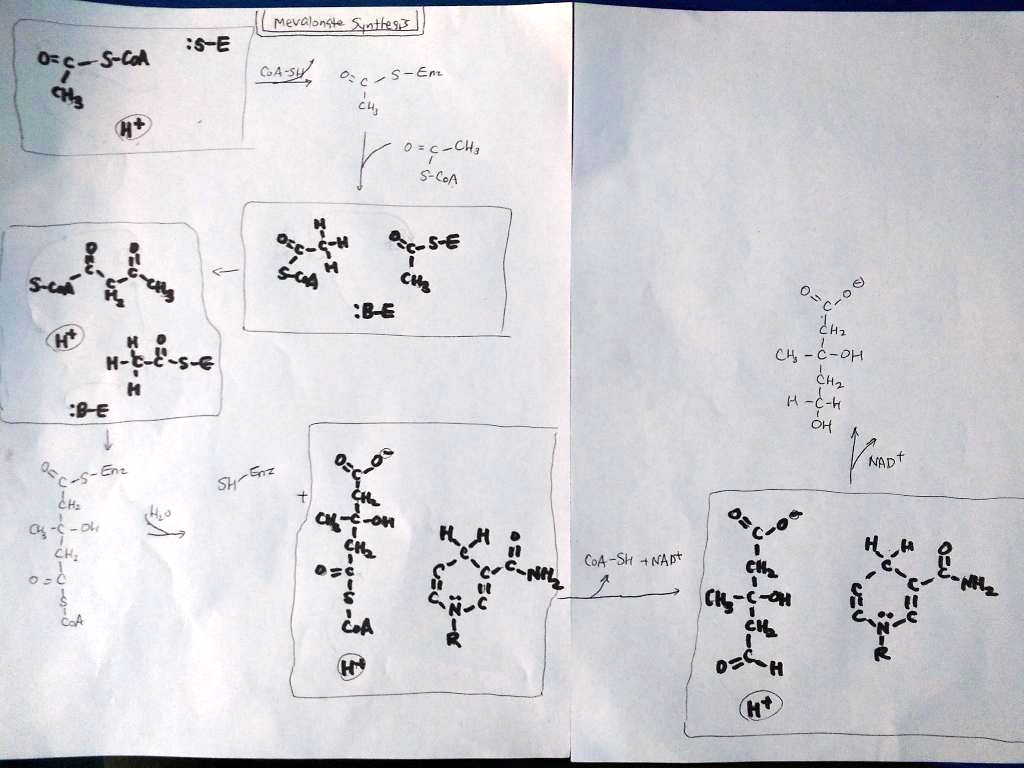 Mevalonate Synthesis
:S-E
O=C-S-CoA
CH3
H+
CoA-SH
O=C-S-Enz
CH3
O=C-CH3
S-CoA
H
O=C-C-H
S-CoA H
O=C-S-E
CH3
:B-E
O O
S-CoA C C CH3
C
H2
H+
H O
H-C-C-S-E
H
:B-E
O=C-S-Enz
CH2
CH3-C-OH
CH2
O=C
S
CoA
H2O
SH-Enz
+
O=C-O⊖
CH2
CH3-C-OH
CH2
O=C
S
CoA
H+
H H
C O
C C-C-NH2
C C
N
R
CoA-SH + NAD+
O=C-O⊖
CH2
CH3-C-OH
CH2
O=C-H
H+
H H
C O
C C-C-NH2
C C
N
R
NAD+
O=C-O⊖
CH2
CH3-C-OH
CH2
H-C-H
OH